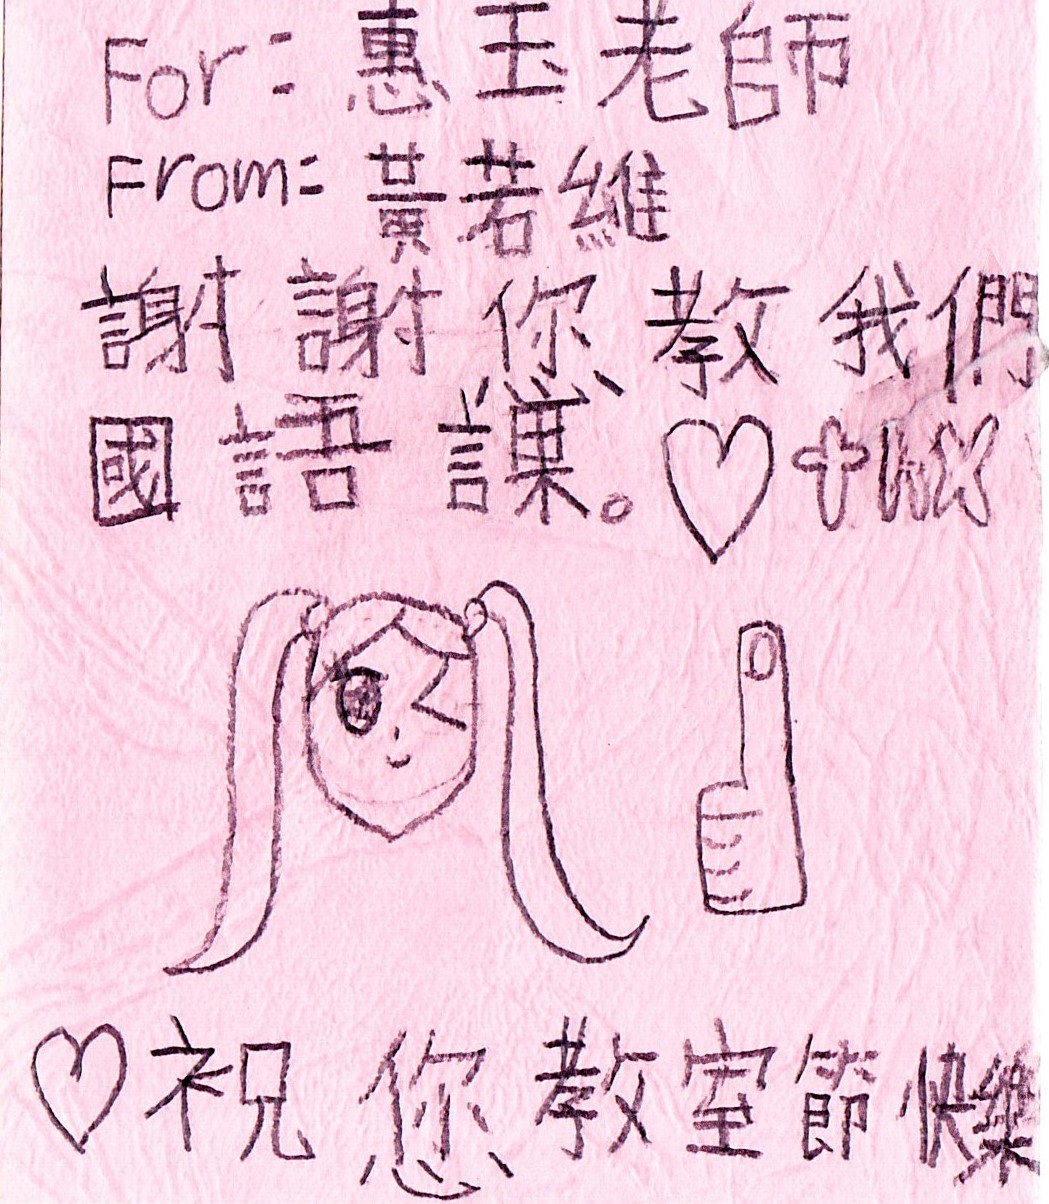 For: 惠玉老師
From: 黃若維
謝謝您教我們
國語課。♡thx
♡祝您教室節快樂